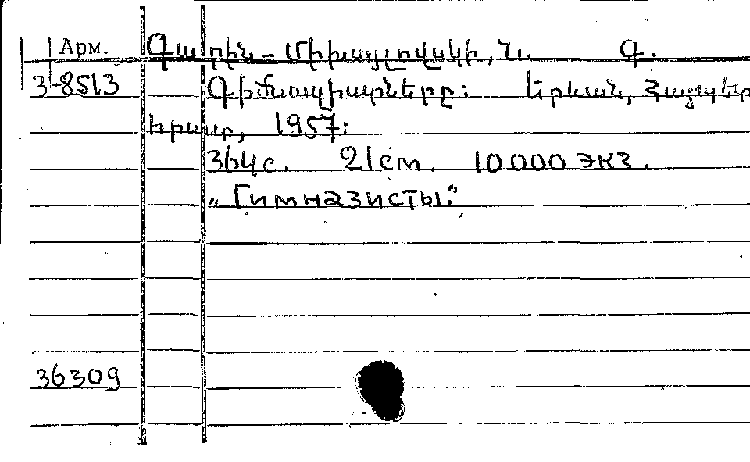 Арм. Գարին - Միխայլովսկի, Ն. Գ.
3-8513 Գիմնազիստները: Երևան, Հայպետ
հրատ, 1957:
364 с. 21 см. 10000 экз.
„Гимназисты"
36309